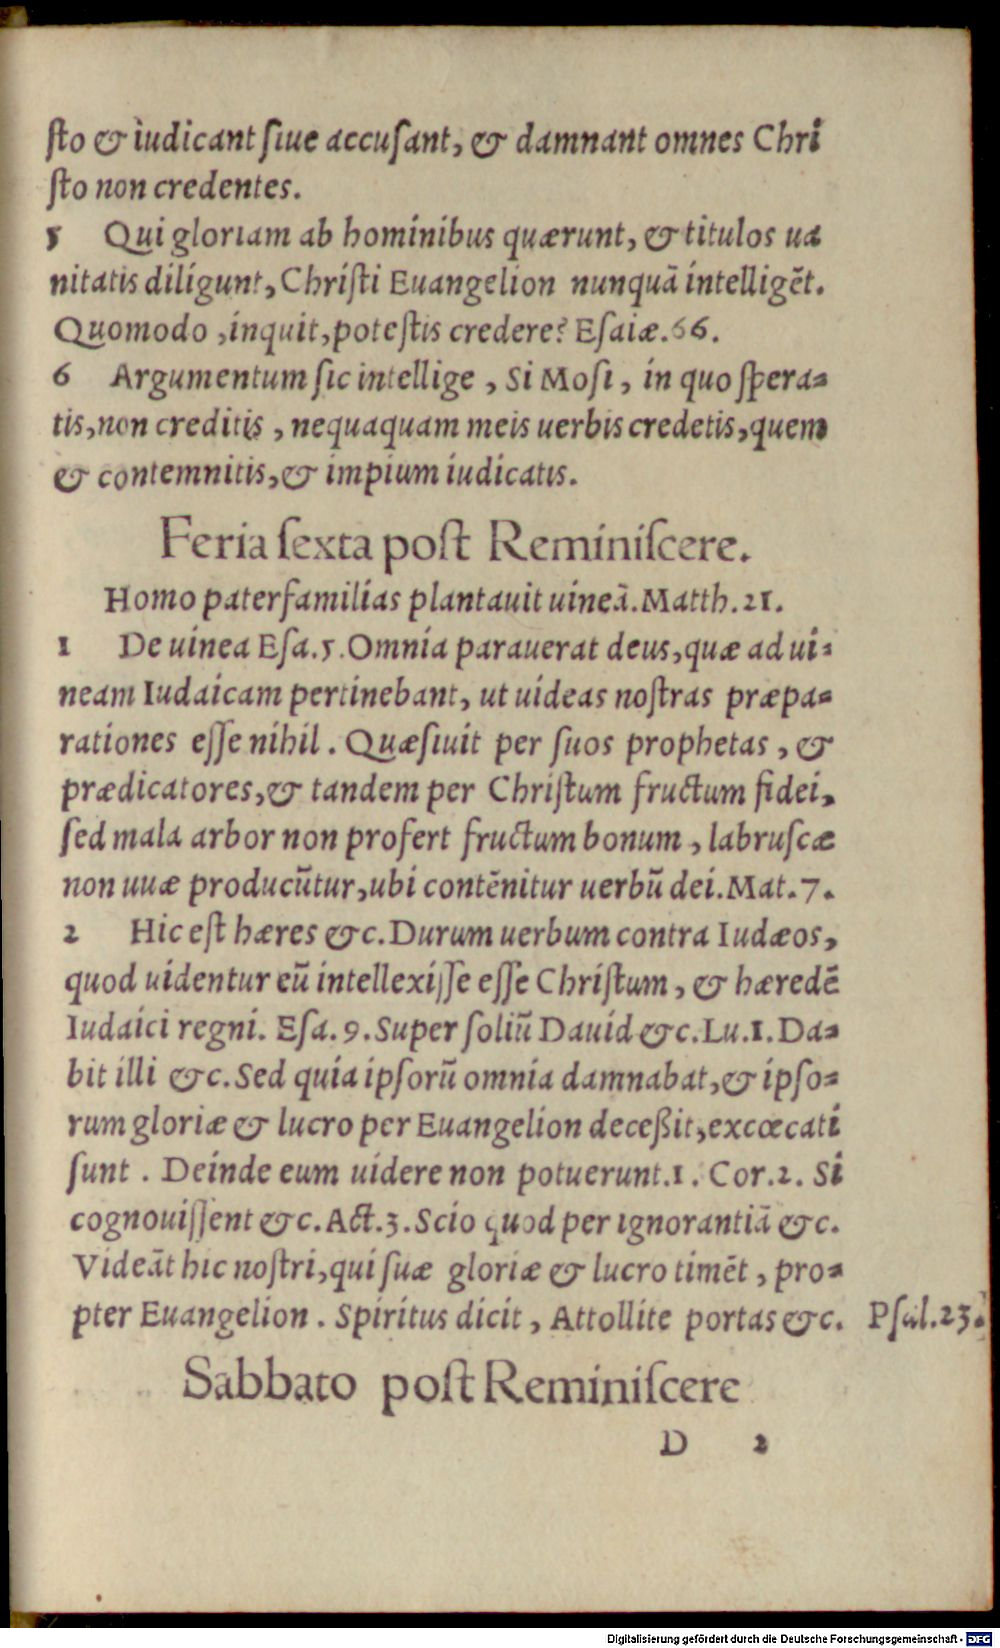 ſto & iudicant ſiue accuſant, & damnant omnes Chri
ſto non credentes.
5 Qui gloriam ab hominibus quærunt, & titulos ua
nitatis diligunt, Chriſti Euangelion nunquā intelligēt.
Quomodo, inquit, poteſtis credere? Eſaiæ. 66.
6 Argumentum ſic intellige, Si Moſi, in quo ſpera⸗
tis, non creditis, nequaquam meis uerbis credetis, quem
& contemnitis, & impium iudicatis.
Feria ſexta poſt Reminiſcere.
Homo paterfamilias plantauit uineā. Matth. 21.
1 De uinea Eſa. 5. Omnia parauerat deus, quæ ad ui⸗
neam Iudaicam pertinebant, ut uideas noſtras præpa⸗
rationes eſſe nihil. Quæſiuit per ſuos prophetas, &
prædicatores, & tandem per Chriſtum fructum fidei,
ſed mala arbor non profert fructum bonum, labruſcæ
non uuæ producūtur, ubi contēnitur uerbū dei. Mat. 7.
2 Hic eſt hæres &c. Durum uerbum contra Iudæos,
quod uidentur eū intellexiſſe eſſe Chriſtum, & hæredē
Iudaici regni. Eſa. 9. Super ſoliū Dauid &c. Lu. 1. Da⸗
bit illi &c. Sed quia ipſorū omnia damnabat, & ipſo⸗
rum gloriæ & lucro per Euangelion deceßit, excœcati
ſunt. Deinde eum uidere non potuerunt. 1. Cor. 2. Si
cognouiſſent &c. Act. 3. Scio quod per ignorantiā &c.
Videāt hic noſtri, qui ſuæ gloriæ & lucro timēt, pro⸗
pter Euangelion. Spiritus dicit, Attollite portas &c. Pſal. 23.
Sabbato poſt Reminiſcere
D 2
Digitalisierung gefördert durch die Deutsche Forschungsgemeinschaft - DFG